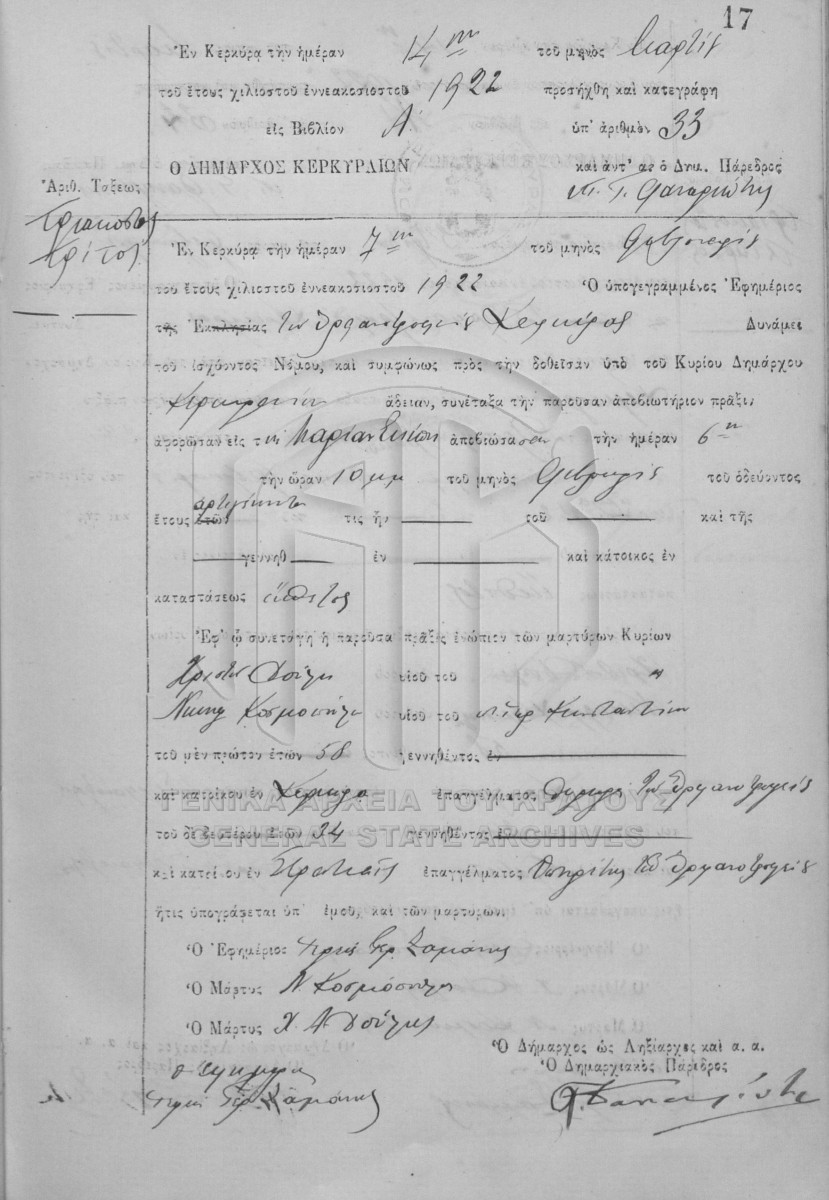 17
Ἐν Κερκύρᾳ τὴν ἡμέραν 14ην τοῦ μηνὸς Μαρτίου
τοῦ ἔτους χιλιοστοῦ ἐννεακοσιοστοῦ 1922 προσήχθη καὶ κατεγράφη
εἰς Βιβλίον Α' ὑπ' ἀριθμὸν 33
Ο ΔΗΜΑΡΧΟΣ ΚΕΡΚΥΡΑΙΩΝ καὶ ἀντ' αὐτοῦ ὁ Δημ. Πάρεδρος
Ἀριθ. Τάξεως
Τριακοστὸς
τρίτος
Ἐν Κερκύρᾳ τὴν ἡμέραν 7ην τοῦ μηνὸς Φεβρουαρίου
τοῦ ἔτους χιλιοστοῦ ἐννεακοσιοστοῦ 1922 Ὁ ὑπογεγραμμένος Ἐφημέριος
τῆς Ἐκκλησίας τοῦ Ὀρφανοτροφείου Κερκύρας Δυνάμει
τοῦ ἰσχύοντος Νόμου, καὶ συμφώνως πρὸς τὴν δοθεῖσαν ὑπὸ τοῦ Κυρίου Δημάρχου
Κερκυραίων ἄδειαν, συνέταξα τὴν παροῦσαν ἀποβιωτήριον πρᾶξιν,
ἀφορῶσαν εἰς τὴν Μαρίαν ἀποβιώσασαν τὴν ἡμέραν 6ην
τὴν ὥραν 10 μμ τοῦ μηνὸς Φεβρουαρίου τοῦ ὁδεύοντος
ἀρτιγέννητον
ἔτους ἐτῶν τις ἦν τοῦ καὶ τῆς
γεννηθ ἐν καὶ κάτοικος ἐν
καταστάσεως ἔκθετος
Ἐφ' ᾧ συνετάγη ἡ παροῦσα πρᾶξις ἐνώπιον τῶν μαρτύρων Κυρίων
Χρῖστον υἱοῦ τοῦ "
υἱοῦ τοῦ Κωνσταντίνου
τοῦ μὲν πρώτου ἐτῶν 58 γεννηθέντος ἐν
καὶ κατοίκου ἐν Κέρκυρα ἐπαγγέλματος θυρωρὸς τοῦ Ὀρφανοτροφείου
ΓΕΝΙΚΑ ΑΡΧΕΙΑ ΤΟΥ ΚΡΑΤΟΥΣ
τοῦ δὲ δευτέρου ἐτῶν 34 γεννηθέντος ἐν
GENERAL STATE ARCHIVES
καὶ κατοίκου ἐν ἐπαγγέλματος ὑπηρέτης τοῦ Ὀρφανοτροφείου
ἥτις ὑπογράφεται ὑπ' ἐμοῦ, καὶ τῶν μαρτύρων.
Ὁ Ἐφημέριος
Ὁ Μάρτυς Ν
Ὁ Μάρτυς Χ. Α.
Ὁ Δήμαρχος ὡς Ληξίαρχος καὶ α. α.
Ὁ Δημαρχιακὸς Πάρεδρος
Ὁ ἐφημέριος